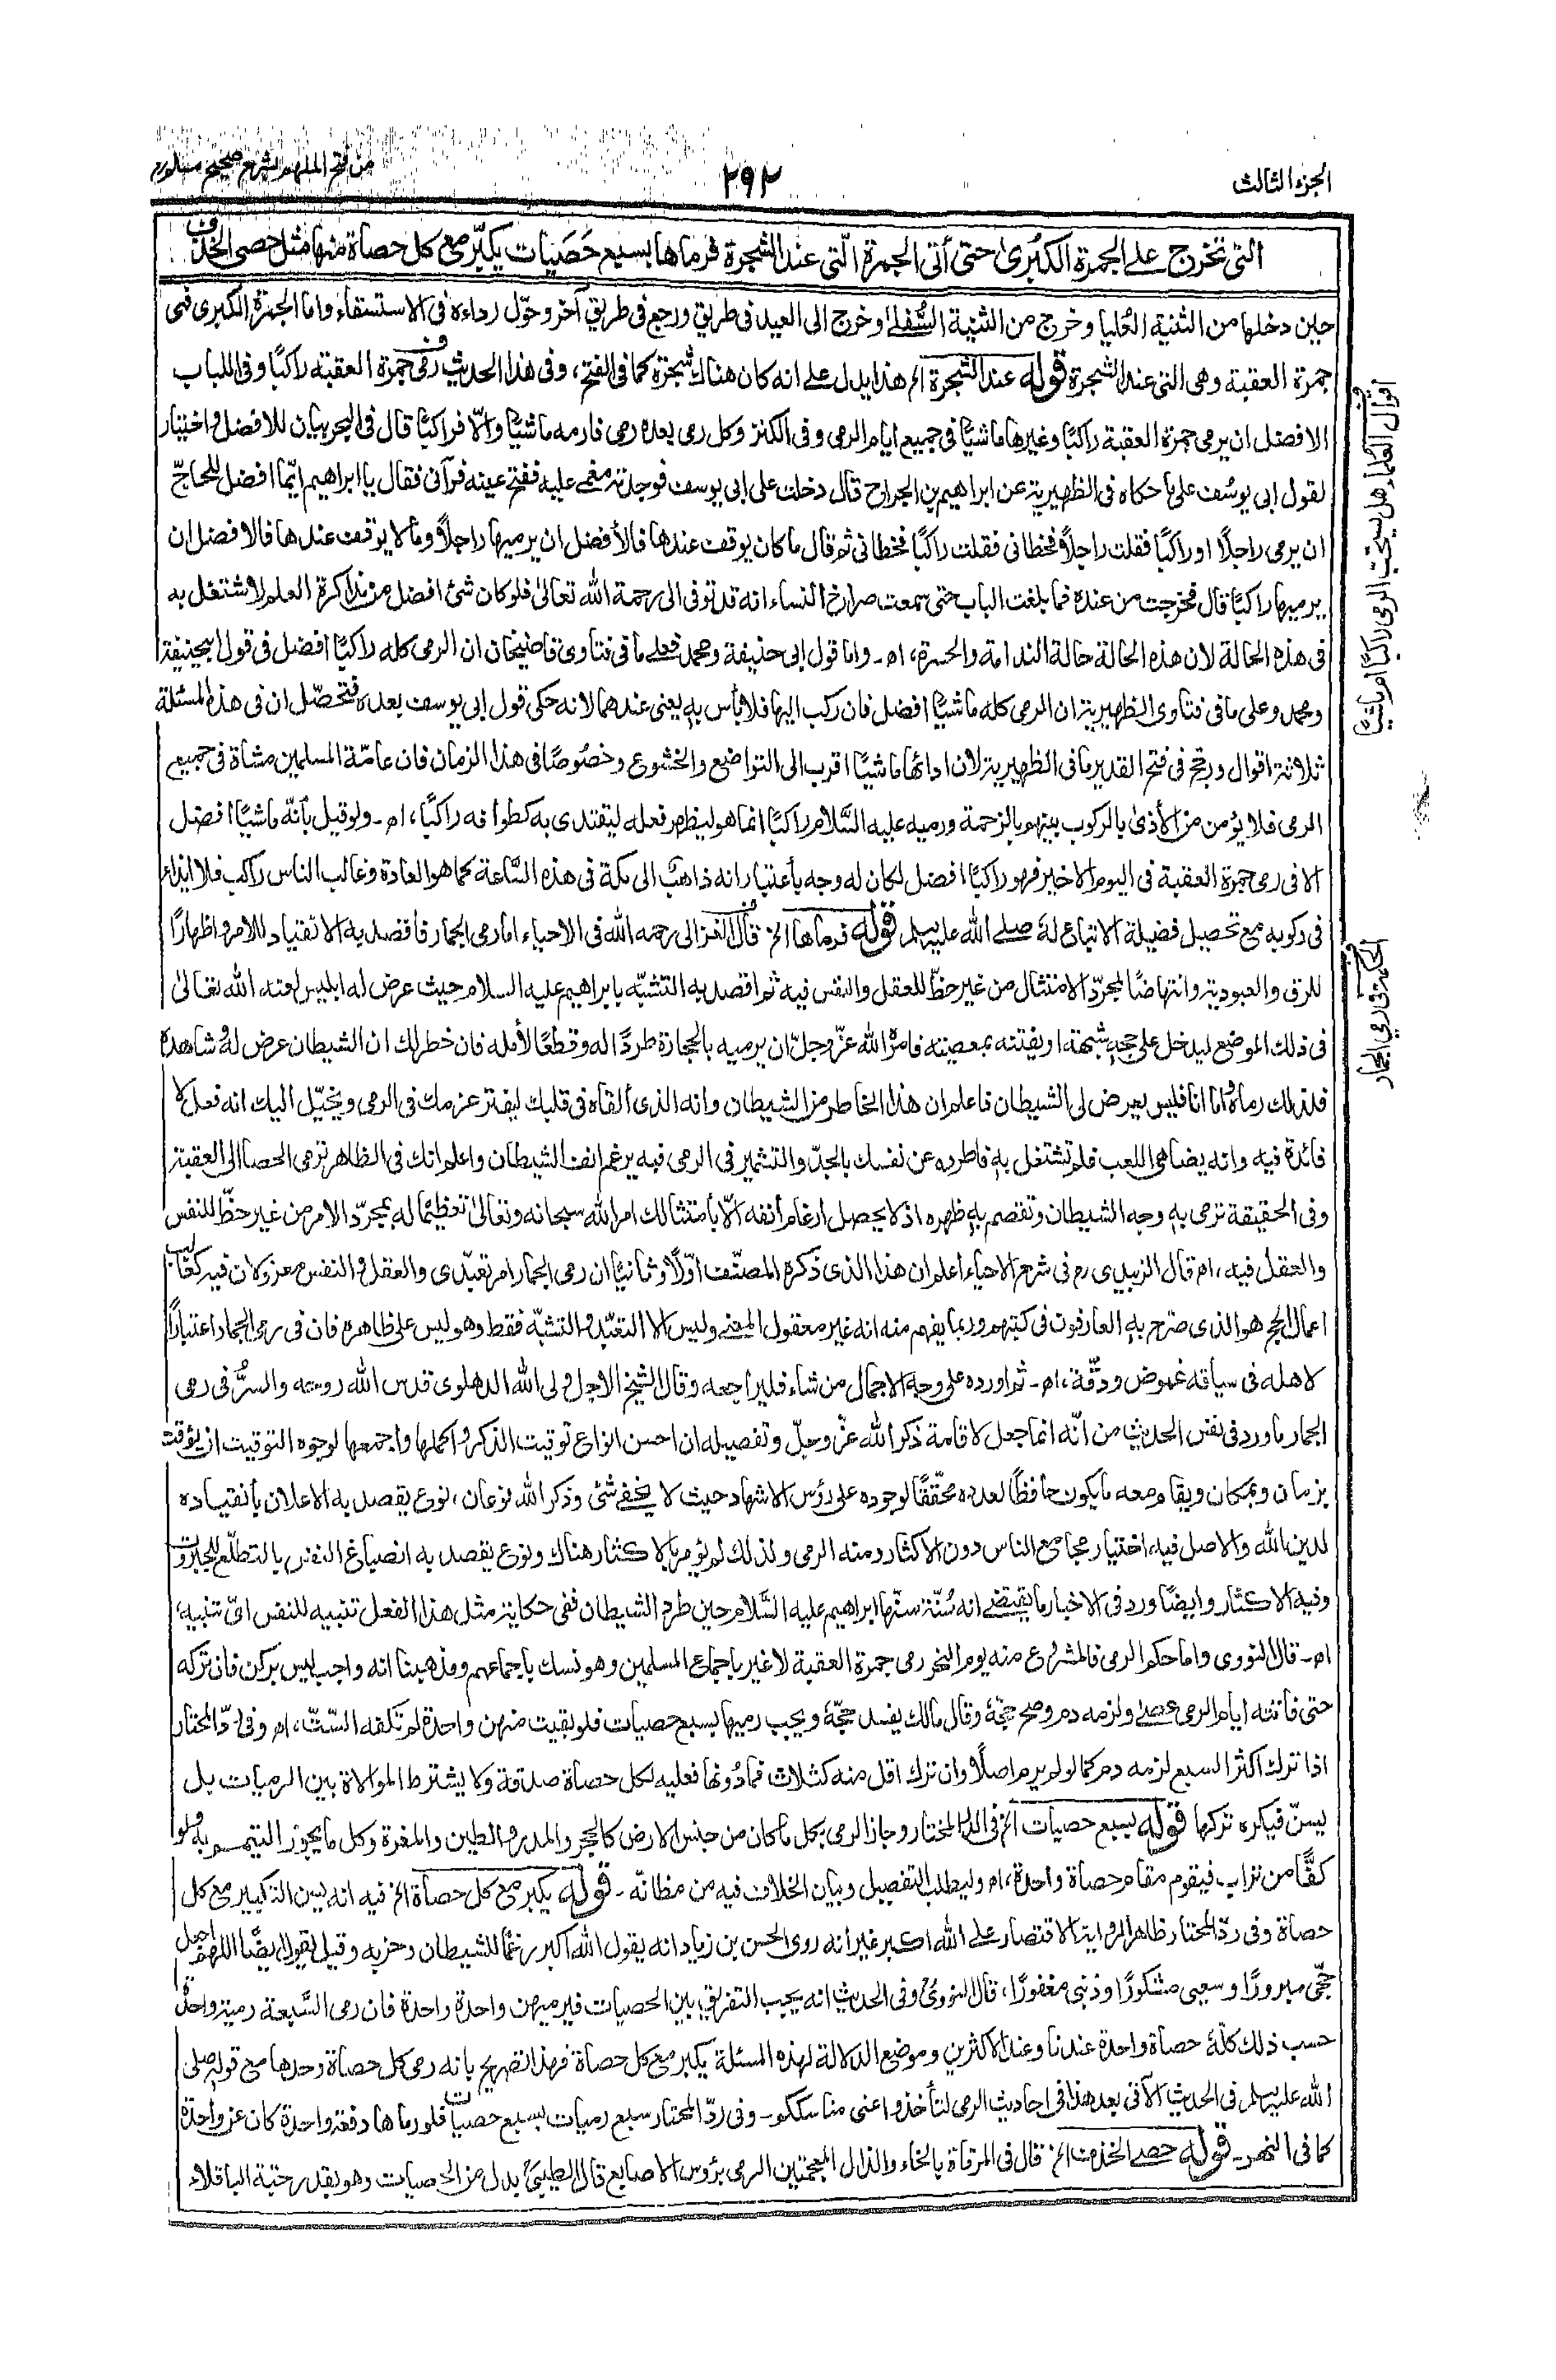 الجزء الثالث
٢٩٢
من فتح الملهم بشرح صحيح مسلم
التى تخرج على الجمرة الكبرى حتى أتى الجمرة الّتى عند الشجرة فرماها بسبع حَصَيات يكبّر مع كل حصاة منها مثل حصى الخذف
حين دخلها من الثنية العُليا وخرج من الثنية السُفلىٰ وخرج الى العيد فى طريق ورجع فى طريق آخر وحوّل رداءه فى الاستسقاء واما الجمرة الكبرى فهى
جمرة العقبة وهى التى عند الشجرة قوله عند الشجرة الخ هذا يدل على انه كان هناك شجرة كما فى الفتح، وفى هذا الحديث رمى جمرة العقبة راكبًا وفى اللباب
الافضل ان يرمى جمرة العقبة راكبًا وغيرها ماشيًا فى جميع ايام الرمى وفى الكنز وكل رمى بعده رمى فارمه ماشيًا والّا فراكبًا قال فى البحر بيان للافضل واختيار
لقول ابى يوسُف على ما حكاه فى الظهيرية عن ابراهيم بن الجراح قال دخلت على ابى يوسف فوجدته مغمى عليه ففتح عينه فرآنى فقال يا ابراهيم ايّما افضل للحاجّ
ان يرمى راجلًا او راكبًا فقلت راجلًا فخطانى فقلت راكبًا فخطانى ثم قال ما كان يوقف عندها فالأفضل ان يرميها راجلًا وما لا يوقف عندها فالافضل ان
يرميها راكبًا قال فخرجت من عنده فما بلغت الباب حتى سمعت صراخ النساء انه قد توفى الى رحمة الله تعالىٰ فلو كان شئ افضل من مذاكرة العلم لاشتغل به
فى هذه الحالة لان هذه الحالة حالة الندامة والحسرة، اھ۔ واما قول ابى حنيفة ومحمد فعلى ما فى فتاوى قاضيخان ان الرمى كله راكبًا افضل فى قول ابيحنيفة
ومحمد وعلى ما فى فتاوى الظهيرية ان الرمى كله ماشيًا افضل فان ركب اليها فلا بأس به يعنى عندهما لانه حكى قول ابى يوسف بعده فتحصّل ان فى هذه المسئلة
ثلاثة اقوال ورجح فى فتح القدير ما فى الظهيرية لان ادائها ماشيًا اقرب الى التواضع والخشوع وخصُوصًا فى هذا الزمان فان عامّة المسلمين مشاة فى جميع
الرمى فلا يؤمن من الأذىٰ بالركوب بينهم بالزحمة ورميه عليه السَّلام راكبًا انما هو ليظهر فعله ليقتدى به كطوافه راكبًا، اھ۔ ولو قيل بأنّه ماشيًا افضل
الا فى رمى جمرة العقبة فى اليوم الاخير فهو راكبًا افضل لكان له وجه بأعتبار انه ذاهبٌ الى مكة فى هذه السَّاعة كما هو العادة وغالب الناس راكب فلا ايذاء
فى ركوبه مع تحصيل فضيلة الاتباع لهٗ صلى الله عليه وسلم قوله فرماها الخ قال الغزالى رحمه الله فى الاحياء اما رمى الجمار فأقصد به الانقياد للامر واظهارًا
للرق والعبودية وانتهاضًا لمجرّد الامتثال من غير حظّ للعقل والنفس فيه ثم اقصد به التشبّه بابراهيم عليه السلام حيث عرض له ابليس لعنه الله تعالىٰ
فى ذلك الموضع ليدخل على حجه شبهة او يفتنه بمعصيته فامرهٗ الله عزّ وجلّ ان يرميه بالحجارة طردًا له وقطعًا لأمله فان خطر لك ان الشيطان عرض لهٗ وشاهده
فلذلك رماهٗ واما انا فليس يعرض لى الشيطان فاعلم ان هذا الخاطر من الشيطان وانه الذى ألقاه فى قلبك ليفتر عزمك فى الرمى ويخيّل اليك انه فعل لا
فائدة فيه وانه يضاهى اللعب فلم تشتغل به فاطرده عن نفسك بالجدّ والتشمير فى الرمى فيه يرغم انف الشيطان واعلم انك فى الظاهر ترمى الحصا الى العقبة
وفى الحقيقة ترمى به وجه الشيطان وتقصم به ظهره اذ لا يحصل ارغام أنفه الّا بأمتثالك امر الله سبحانه وتعالىٰ تعظيمًا له بمجرّد الامر من غير حظّ للنفس
والعقل فيه، اھ قال الزبيدى رح فى شرح الاحياء اعلم ان هذا الذى ذكره المصنّف اوّلًا وثانيًا ان رمى الجمار امر تعبّدى والعقل والنفس معزولان فيه كغالب
اعمال الحج هو الذى صرّح به العارفون فى كتبهم وربما يفهم منه انه غير معقول المعنى وليس الا التعبّد والتشبّه فقط وهو ليس على ظاهره فان فى رمى الجمار اعتبارًا
لاهله فى سياقه غموض ودقّة، اھ۔ ثم اورده على وجه الاجمال من شاء فليراجعه وقال الشيخ الاجل ولى الله الدهلوى قدس الله روحه والسرُّ فى رمى
الجمار ما ورد فى نفس الحديث من انّه انما جعل لاقامة ذكر الله عزّ وجلّ وتفصيله ان احسن انواع توقيت الذكر واكملها واجمعها لوجوه التوقيت ان يؤقت
بزمان وبمكان ويقام معه ما يكون حافظًا لعدده محققًا لوجوده على رؤس الاشهاد حيث لا يخفى شئ وذكر الله نوعان، نوع يقصد به الاعلان بأنقياده
لدين الله والاصل فيه اختيار مجامع الناس دون الاكثار ومنه الرمى ولذلك لم يؤمر بالاكثار هناك ونوع يقصد به انصباغ النفس بالتطلّع للجبروت
وفيه الاكثار وايضًا ورد فى الاخبار ما يقتضى انه سُنّة سنّها ابراهيم عليه السَّلام حين طرد الشيطان ففى حكاية مثل هذا الفعل تنبيه للنفس اىّ تنبيه،
اھ۔ قال النووى واما حكم الرمى فالمشروع منه يوم النحر رمى جمرة العقبة لا غير باجماع المسلمين وهو نسك باجماعهم ومذهبنا انه واجب ليس بركن فان تركه
حتى فأتته ايام الرمى عصى ولزمه دم وصح حجّهٗ وقال مالك يفسد حجّهٗ ويجب رميها بسبع حصيات فلو بقيت منهن واحدة لم تكفه السّتّ، اھ وفى ردّ المحتار
اذا ترك اكثر السبع لزمه دم كما لو لم يرم اصلًا وان ترك اقل منه كثلاث فما دُونها فعليه لكل حصاة صدقة ولا يشترط الموالاة بين الرميات بل
يسنّ فيكره تركها قوله بسبع حصيات الخ فى الدر المختار وجاز الرمى بكل ما كان من جنس الارض كالحجر والمدر والطين والمغرة وكل ما يجوز التيمم به ولو
كفًّا من تراب فيقوم مقام حصاة واحدة، اھ وليطلب التفصيل وبيان الخلاف فيه من مظانّه۔ قوله يكبر مع كل حصاة الخ فيه انه يسن التكبير مع كل
حصاة وفى ردّ المحتار ظاهر الرواية الاقتصار على الله اكبر غير انه روى الحسن بن زياد انه يقول الله اكبر رغمًا للشيطان وحزبه وقيل يقول ايضًا اللهم اجعل
حجّى مبرورًا وسعيى مشكورًا وذنبى مغفورًا، قال النووىُّ وفى الحديث انه يجب التفريق بين الحصيات فيرميهن واحدة واحدة فان رمى السَّبعة رمية واحدةً
حسب ذلك كلّهٗ حصاة واحدة عندنا وعند الاكثرين وموضع الدلالة لهذه المسئلة يكبر مع كل حصاة فهذا تصريح بانه رمى كل حصاة وحدها مع قوله صلى
الله عليه وسلم فى الحديث الآتى بعد هذا فى احاديث الرمى لتأخذوا عنى مناسككم۔ وفى ردّ المحتار سبع رميات بسبع حصيات فلو رماها دفعة واحدة كان عن واحدة
كما فى النهر۔ قوله حصى الخذف الخ قال فى المرقاة بالخاء والذال المعجمتين الرمى برؤس الاصابع قال الطيبىُّ بدل من الحصيات وهو بقدر حبّة الباقلاء
اقوال العلماء هل يستحب الرمى راكبًا او ماشيًا
الحكمة فى رمى الجمار